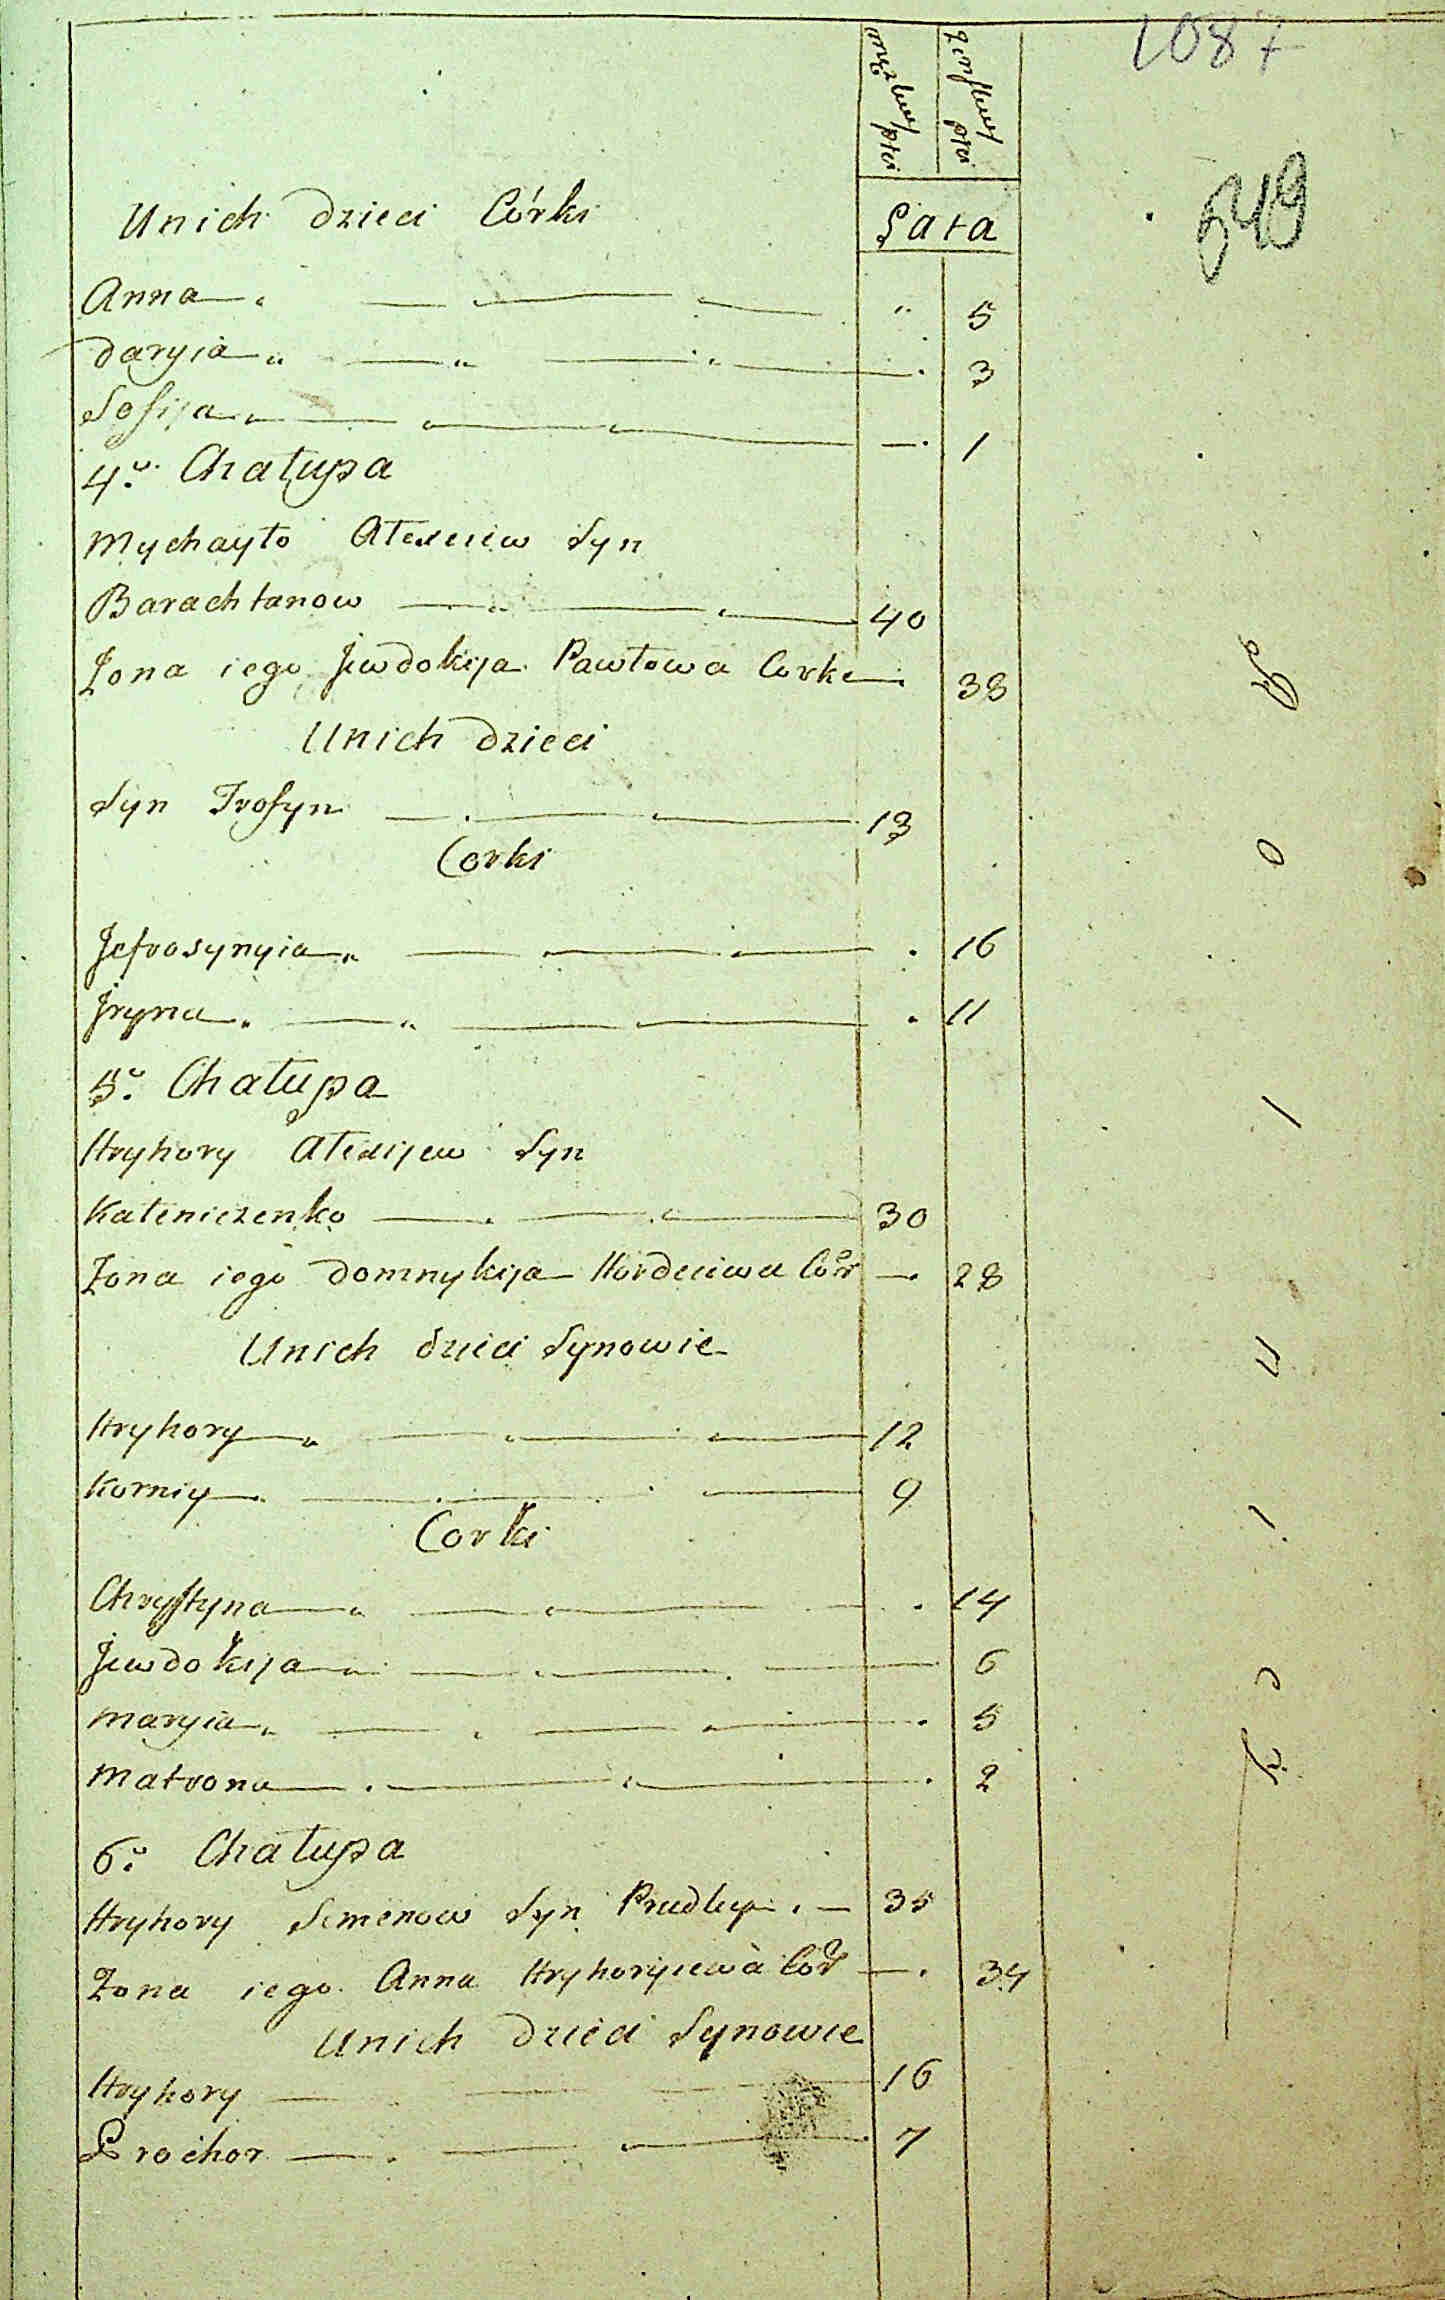 1087
549
męzkiey płci
żenskiey płci
Łata
Unich dzieci Córki
Anna 5
Daryia 3
Sofija 1
4a Chałupa
Mychayło Ałexeiew Syn
Barachtanow 40
Żona iego Jewdokija Pawłowa Corka 38
Unich dzieci
Syn Trofyn 13
Corki
Jefrosynyia 16
Jryna 11
5a Chałupa
Hryhory Ałexijew Syn
Kateniczenko 30
Żona iego Domnykija Hordeiewa Cór 28
Unich dzieci Synowie
Hryhory 12
Korniy 9
Corki
Chrystyna 14
Jewdokija 6
Maryia 5
Matrona 2
6a Chałupa
Hryhory Semenow Syn 35
Żona iego Anna Hryhoryiewa Cór 34
Unich dzieci Synowie
Hryhory 16
Prochor 7